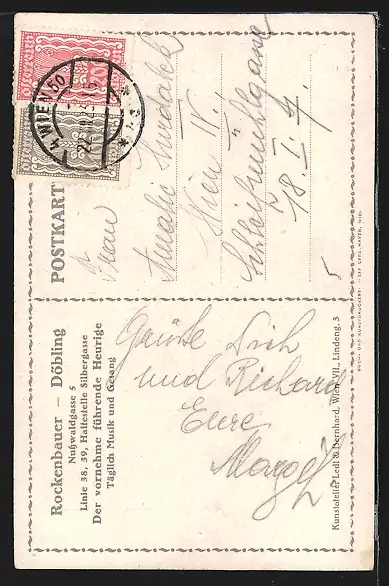 POSTKARTE
Rockenbauer — Döbling
Nußwaldgasse 5
Linie 38, 39, Haltestelle Silbergasse
Der vornehme führende Heurige
Täglich Musik und Gesang
Grüße Dich
und Richard
Eure
Frau
Amalie
Wien IV.
Schleifmühlgasse
18. I. 7.
WIEN 50
Kunstatelier Ledl & Bernhard, Wien VII, Lindeng. 3